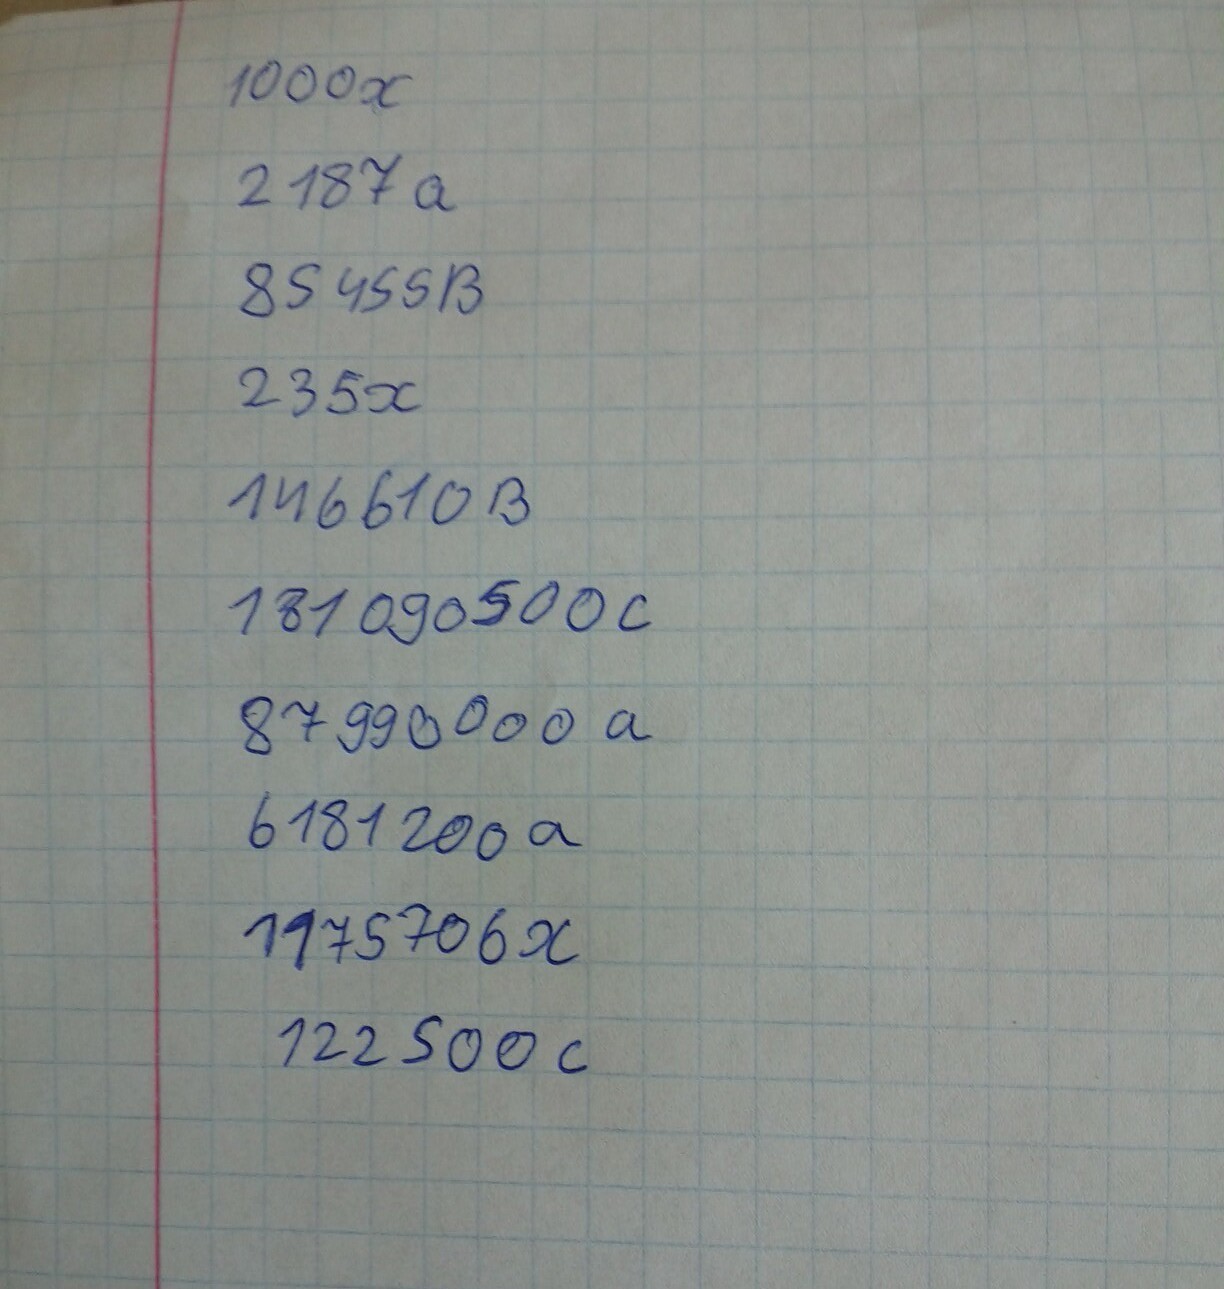 1000x
2187a
85455B
235x
146610B
181090500c
87990000a
6181200a
1975706x
122500c